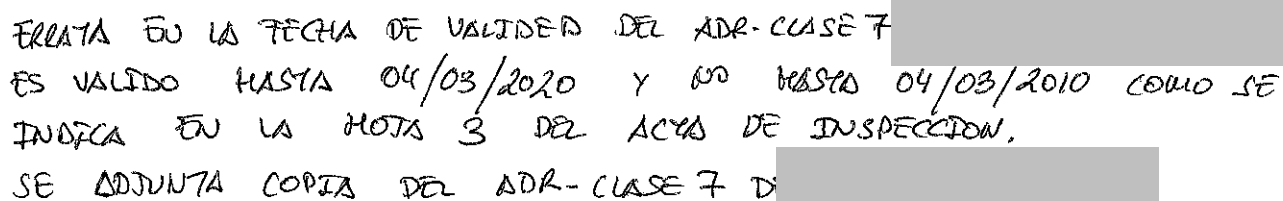 ERRATA EN LA FECHA DE VALIDED DEL ADR-CLASE 7
ES VALIDO HASTA 04/03/2020 Y NO HASTA 04/03/2010 COMO SE
INDICA EN LA HOJA 3 DEL ACTA DE INSPECCION.
SE ADJUNTA COPIA DEL ADR-CLASE 7 D